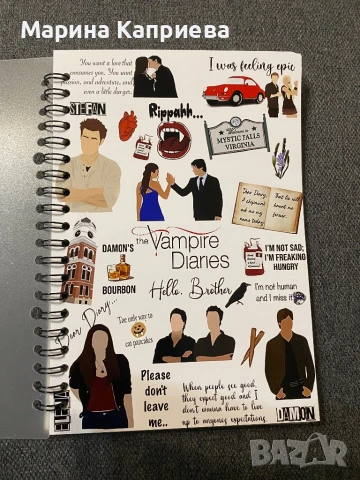 Марина Каприева
You want a love that
consumes you. You want
passion, and adventure, and
even a little danger.
I was feeling epic
STEFAN
Rippahh...
Welcome to
MYSTIC FALLS
VIRGINIA
Dear Diary,
DAMON'S
BOURBON
the Vampire
Diaries
I'M NOT SAD;
I'M FREAKING
HUNGRY
Hello, Brother
I'm not human
and I miss it
Dear Diary...
The only way to
eat pancakes
Please
don't
leave
me..
When people see good,
they expect good and I
don't wanna have to live
up to anyones expectations.
ELENA
DAMON
BAZAR